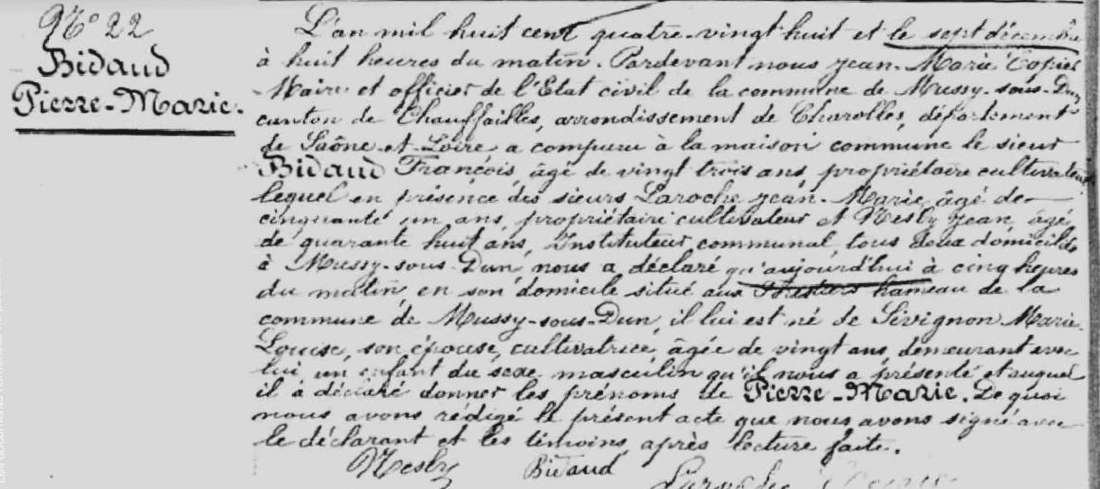 N° 22
Bidaud
Pierre-Marie.
L'an mil huit cent quatre-vingt huit et le sept décembre
à huit heures du matin. Pardevant nous Jean-Marie
Maire et officier de l'Etat civil de la commune de Mussy-sous-Dun
canton de Chauffailles, arrondissement de Charolles, département
de Saône-et-Loire a comparu à la maison commune le sieur
Bidaud François, âgé de vingt trois ans, propriétaire cultivateur
lequel en présence des sieurs Laroche Jean-Marie, âgé de
cinquante un ans, propriétaire cultivateur et Nesly Jean, âgé
de quarante huit ans, Instituteur communal, tous deux domiciliés
à Mussy-sous-Dun, nous a déclaré qu'aujourd'hui à cinq heures
du matin, en son domicile situé aux hameau de la
commune de Mussy-sous-Dun, il lui est né de Sivignon Marie
Louise, son épouse, cultivatrice, âgée de vingt ans, demeurant avec
lui un enfant du sexe masculin qu'il nous a présenté et auquel
il a déclaré donner les prénoms de Pierre-Marie. De quoi
nous avons rédigé le présent acte que nous avons signé avec
le déclarant et les témoins, après lecture faite.
Nesly Bidaud